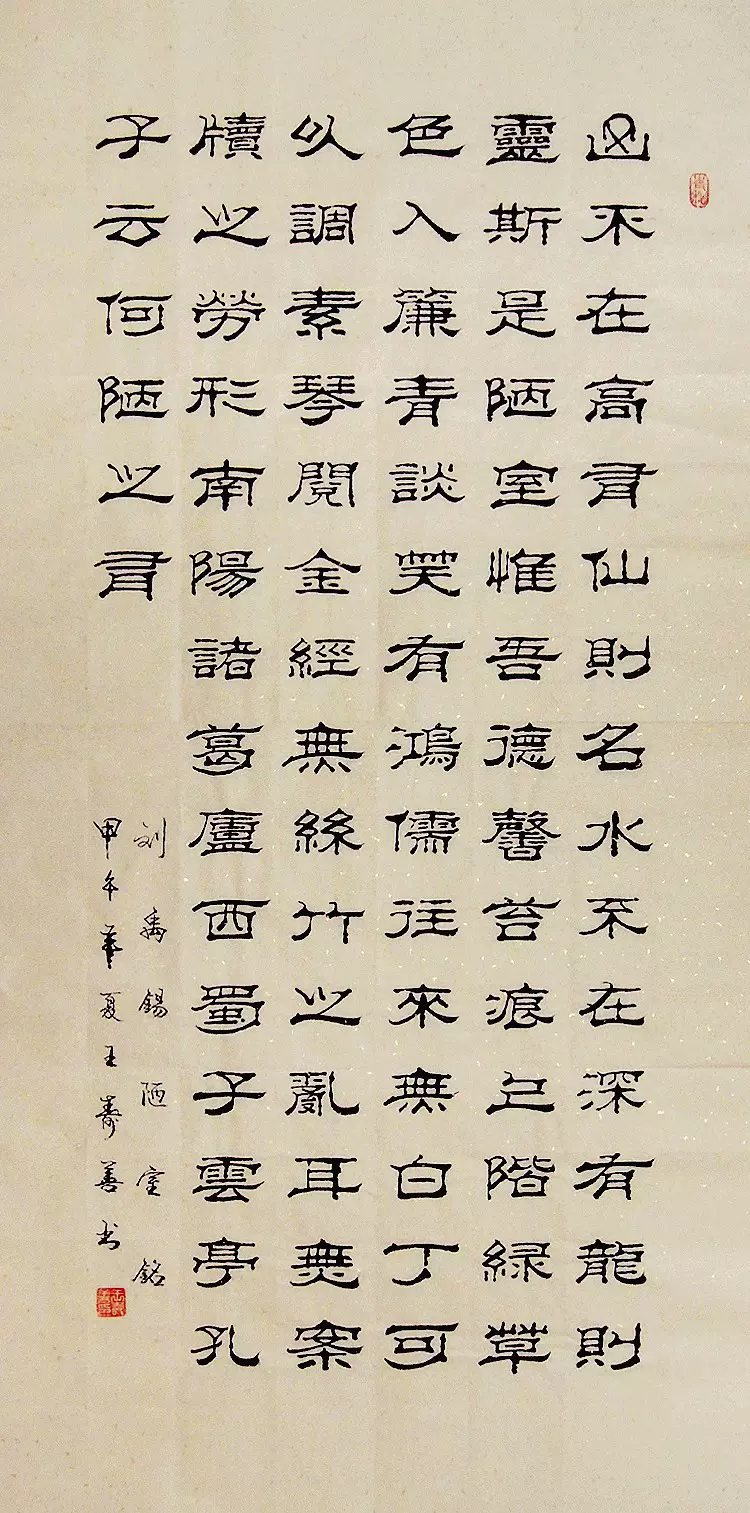 山不在高有仙則名水不在深有龍則
靈斯是陋室惟吾德馨苔痕上階緑草
色入簾青談笑有鴻儒往來無白丁可
以調素琴閱金經無絲竹之亂耳無案
牘之勞形南陽諸葛廬西蜀子雲亭孔
子云何陋之有
刘禹錫陋室銘
甲午年夏王壽善书